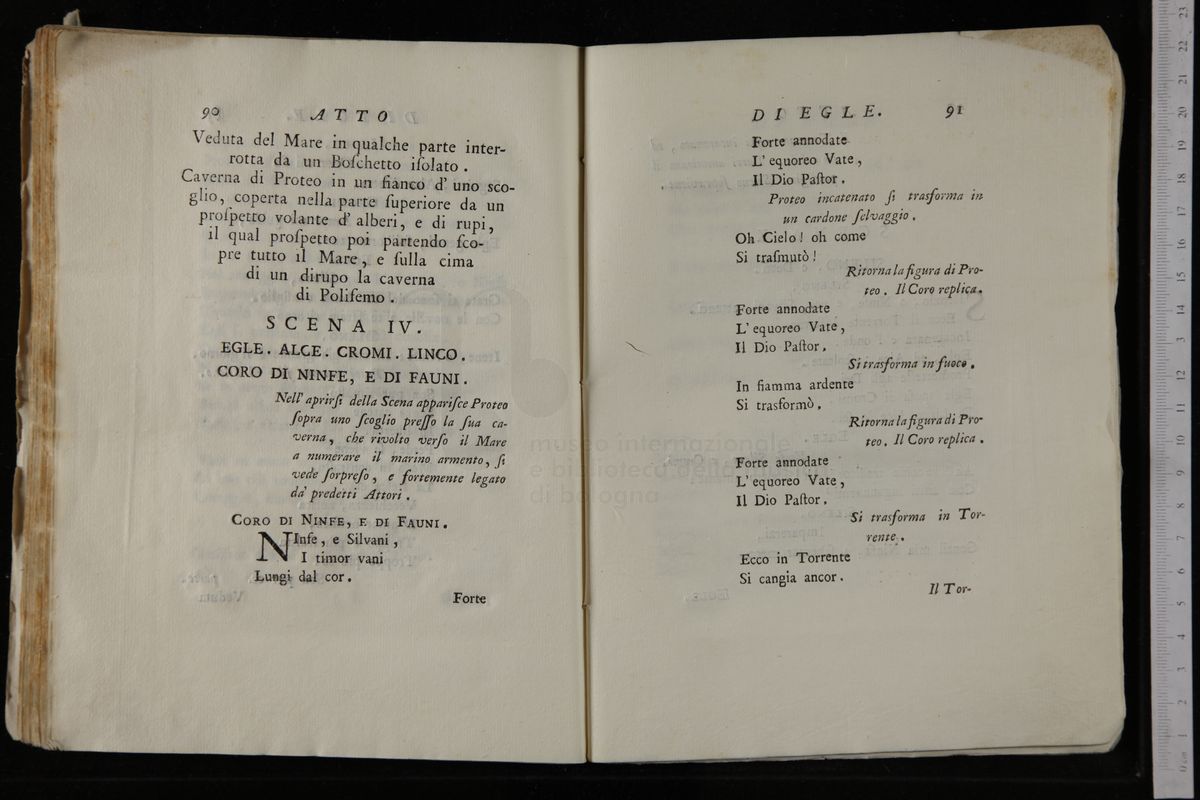 90 ATTO
Veduta del Mare in qualche parte inter-
rotta da un Boſchetto iſolato .
Caverna di Proteo in un fianco d' uno sco-
glio, coperta nella parte ſuperiore da un
proſpetto volante d' alberi, e di rupi,
il qual proſpetto poi partendo ſco-
pre tutto il Mare, e ſulla cima
di un dirupo la caverna
di Polifemo .
SCENA IV.
EGLE. ALCE. CROMI. LINCO.
CORO DI NINFE, E DI FAUNI.
Nell' aprirſi della Scena appariſce Proteo
ſopra uno ſcoglio preſſo la ſua ca-
verna, che rivolto verſo il Mare
a numerare il marino armento, ſi
vede ſorpreſo, e fortemente legato
da' predetti Attori .
CORO DI NINFE, E DI FAUNI.
NInfe, e Silvani,
I timor vani
Lungi dal cor.
Forte
DI EGLE. 91
Forte annodate
L' equoreo Vate,
Il Dio Paſtor.
Proteo incatenato ſi trasforma in
un cardone ſelvaggio .
Oh Cielo! oh come
Si traſmutò!
Ritorna la figura di Pro-
teo. Il Coro replica.
Forte annodate
L' equoreo Vate,
Il Dio Paſtor.
Si trasforma in fuoco.
In fiamma ardente
Si trasformò.
Ritorna la figura di Pro-
teo. Il Coro replica.
Forte annodate
L' equoreo Vate,
Il Dio Paſtor.
Si trasforma in Tor-
rente.
Ecco in Torrente
Si cangia ancor.
Il Tor-
museo internazionale
e biblioteca della musica
di bologna
0 cm 1 2 3 4 5 6 7 8 9 10 11 12 13 14 15 16 17 18 19 20 21 22 23